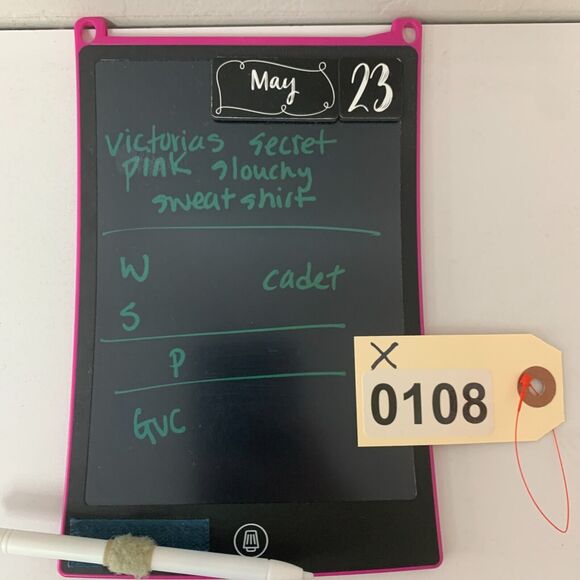 May 23
victorias secret
pink slouchy
sweatshirt
W cadet
S
P
GUC
X
0108